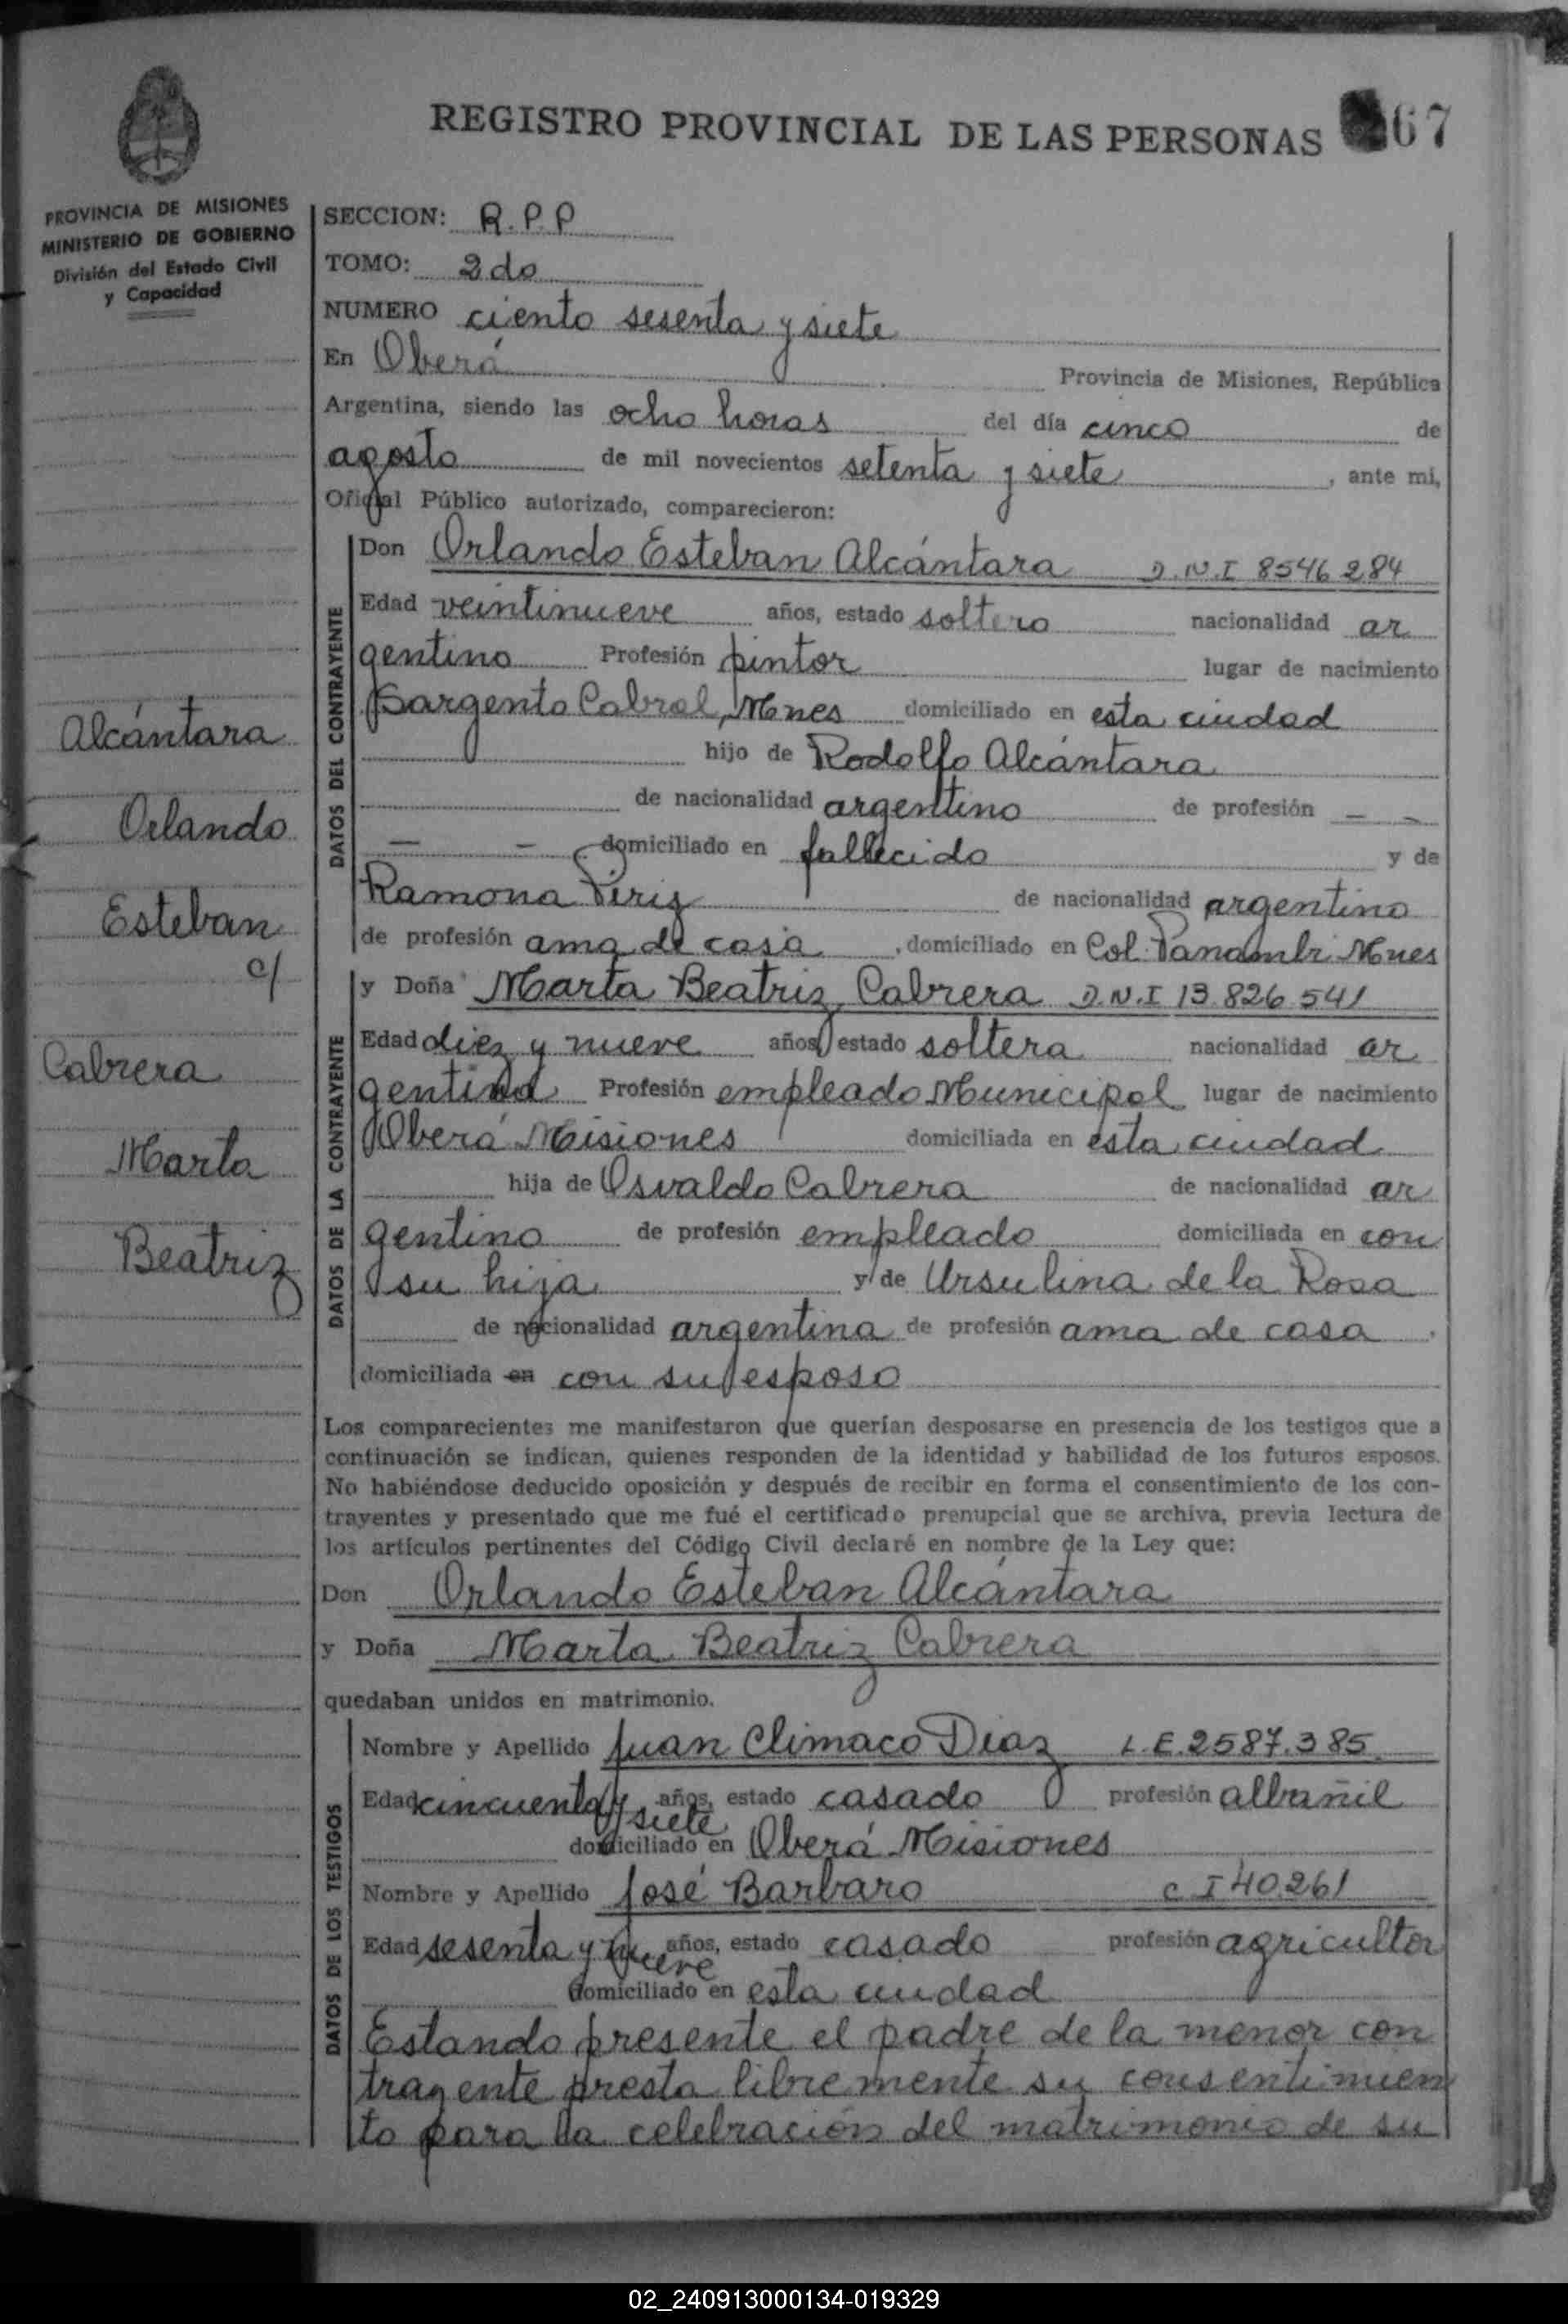 REGISTRO PROVINCIAL DE LAS PERSONAS 67
PROVINCIA DE MISIONES
MINISTERIO DE GOBIERNO
División del Estado Civil
y Capacidad
SECCION: R.P.P
TOMO: 2do
NUMERO ciento sesenta y siete
En Oberá Provincia de Misiones, República
Argentina, siendo las ocho horas del día cinco de
agosto de mil novecientos setenta y siete, ante mi,
Oficial Público autorizado, comparecieron:
DATOS DEL CONTRAYENTE
Don Orlando Esteban Alcántara D.N.I 8546284
Edad veintinueve años, estado soltero nacionalidad ar
gentino Profesión pintor lugar de nacimiento
Sargento Cabral, Mnes domiciliado en esta ciudad
hijo de Rodolfo Alcántara
de nacionalidad argentino de profesión - -
- - domiciliado en fallecido y de
Ramona Piriz de nacionalidad argentino
de profesión ama de casa, domiciliado en Col. Panambi Mnes
DATOS DE LA CONTRAYENTE
y Doña Marta Beatriz Cabrera D.N.I 13.826.541
Edad diez y nueve años, estado soltera nacionalidad ar
gentina Profesión empleado Municipal lugar de nacimiento
Oberá Misiones domiciliada en esta ciudad
hija de Osvaldo Cabrera de nacionalidad ar
gentino de profesión empleado domiciliada en con
su hija y de Ursulina de la Rosa
de nacionalidad argentina de profesión ama de casa.
domiciliada en con su esposo
Los comparecientes me manifestaron que querían desposarse en presencia de los testigos que a
continuación se indican, quienes responden de la identidad y habilidad de los futuros esposos.
No habiéndose deducido oposición y después de recibir en forma el consentimiento de los con-
trayentes y presentado que me fué el certificado prenupcial que se archiva, previa lectura de
los artículos pertinentes del Código Civil declaré en nombre de la Ley que:
Don Orlando Esteban Alcántara
y Doña Marta Beatriz Cabrera
quedaban unidos en matrimonio.
DATOS DE LOS TESTIGOS
Nombre y Apellido Juan Climaco Diaz L.E.2587.385
Edad cincuenta y siete años, estado casado profesión albañil
domiciliado en Oberá Misiones
Nombre y Apellido José Barbaro C.I 40.261
Edad sesenta y nueve años, estado casado profesión agricultor
domiciliado en esta ciudad
Estando presente el padre de la menor con
trayente presta libremente su consentimien
to para la celebración del matrimonio de su
Alcántara
Orlando
Esteban
c/
Cabrera
Marta
Beatriz
02_240913000134-019329